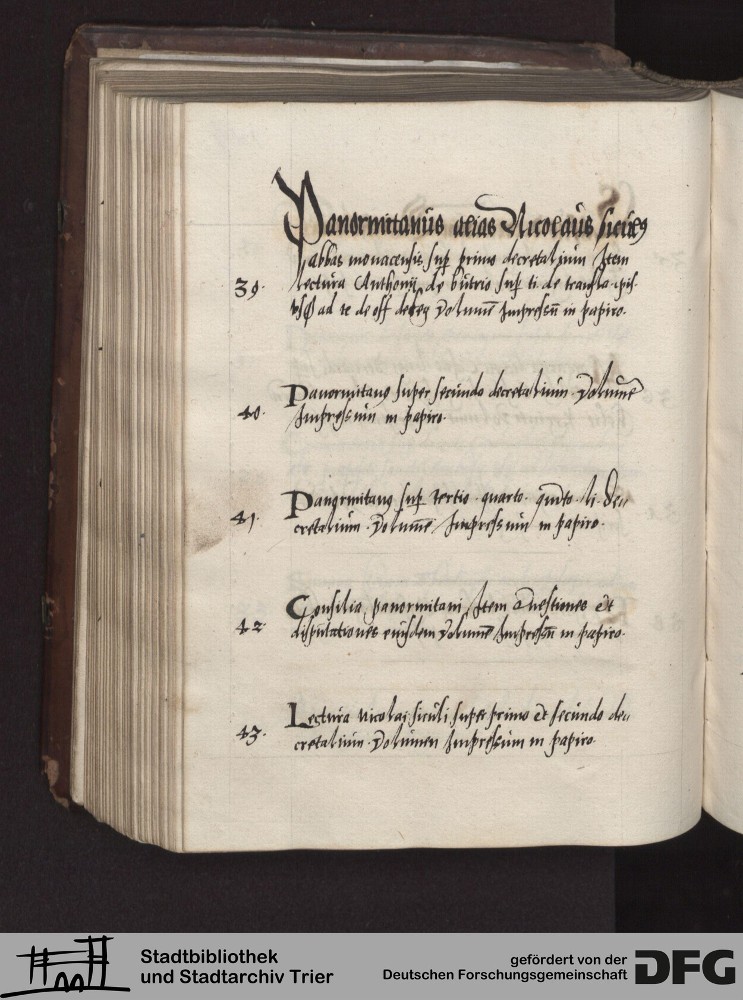 Panormitanus alias Nicolaus siculꝰ
abbas monacensis sup primo decretalium Item
39. lectura Anthonij de butrio sup ti de transla. epis.
vsqꝫ ad te de off deleg Volumē Impressū in papiro.
Panormitanꝰ super secundo decretalium. Volumē
40. Impressum in papiro.
Panormitanꝰ sup tertio. quarto. qu̅to. li. de
41. cretalium. Volumē Impressum in papiro.
Consilia panormitani Item Questiones et
42. disputationes eiusdem Volumē Impressū in papiro.
Lectura nicolai siculi super primo et secundo de
43. cretalium. Volumen Impressum in papiro.
Stadtbibliothek
und Stadtarchiv Trier
gefördert von der
Deutschen Forschungsgemeinschaft
DFG